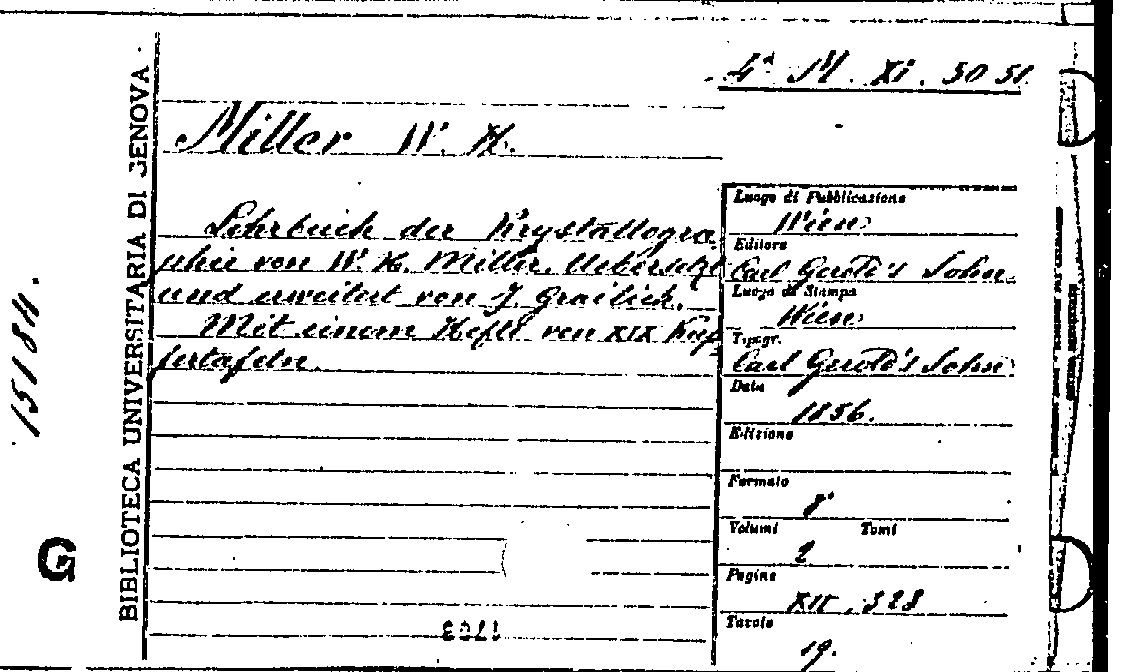 4ª M. XI. 50 51
Miller W. H.
Lehrbuch der Krystallogra
phie von W. H. Miller. Uebersetzt
und erweitert von J. Grailich.
Mit einem Hefte von XIX Kup
fertafeln.
Luogo di Pubblicazione
Wien
Editore
Carl Gerold's Sohn.
Luogo di Stampa
Wien
Tipogr.
Carl Gerold's Sohn
Data
1856.
Edizione
Formato
8°
Volumi Tomi
2
Pagine
XII, 328
Tavole
19.
BIBLIOTECA UNIVERSITARIA DI GENOVA
15184.
G